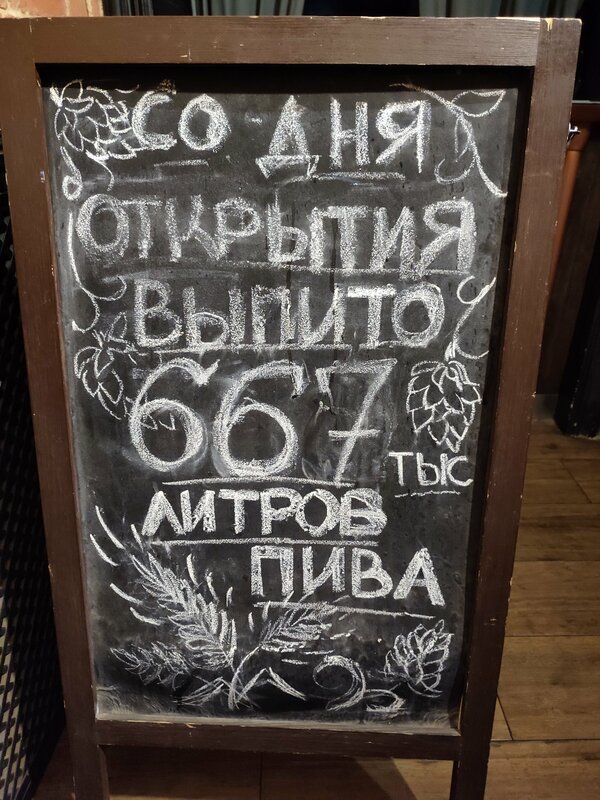 СО ДНЯ
ОТКРЫТИЯ
ВЫПИТО
667 ТЫС
ЛИТРОВ
ПИВА